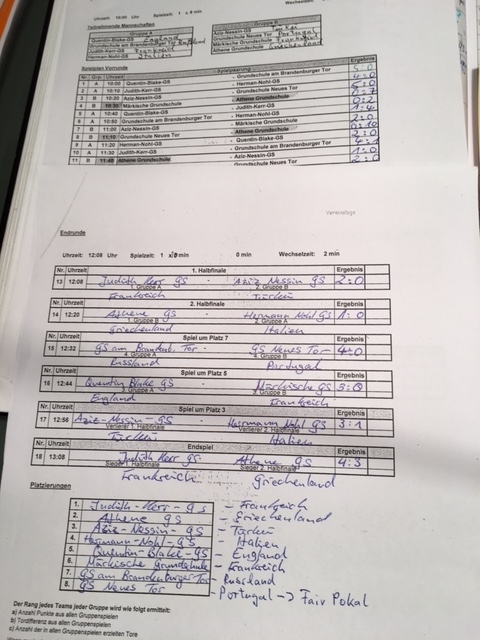 Wechselzeit:
Uhrzeit: 10:00 Uhr Spielzeit: 1 x 8 min
Teilnehmende Mannschaften
Gruppe A
Gruppe B
Quentin-Blake-GS England
Aziz-Nessin-GS Türkei
Grundschule am Brandenburger Tor Russland
Grundschule Neues Tor Portugal
Judith-Kerr-GS Frankreich
Märkische Grundschule Frankreich
Herman-Nohl-GS Italien
Athene Grundschule Griechenland
Spielplan Vorrunde
Nr. Grp. Uhrzeit Spielpaarung Ergebnis
1 A 10:00 Quentin-Blake-GS - Grundschule am Brandenburger Tor
2 A 10:10 Judith-Kerr-GS - Herman-Nohl-GS
3 B 10:20 Aziz-Nessin-GS - Grundschule Neues Tor
4 B 10:30 Märkische Grundschule - Athene Grundschule
5 A 10:40 Quentin-Blake-GS - Judith-Kerr-GS
6 A 10:50 Grundschule am Brandenburger Tor - Herman-Nohl-GS
7 B 11:00 Aziz-Nessin-GS - Märkische Grundschule
8 B 11:10 Grundschule Neues Tor - Athene Grundschule
9 A 11:20 Herman-Nohl-GS - Quentin-Blake-GS
10 A 11:30 Judith-Kerr-GS - Grundschule am Brandenburger Tor
11 B 11:40 Athene Grundschule - Aziz-Nessin-GS 2:0
Endrunde
Uhrzeit: 12:08 Uhr Spielzeit: 1 x min 0 min Wechselzeit: 2 min
Nr. Uhrzeit 1. Halbfinale Ergebnis
13 12:08 Judith Kerr GS - Aziz Nessin GS 2:0
1. Gruppe A 2. Gruppe B
Frankreich Türkei
Nr. Uhrzeit 2. Halbfinale Ergebnis
14 12:20 Athene GS - Hermann Nohl GS 1:0
1. Gruppe B 2. Gruppe A
Griechenland Italien
Nr. Uhrzeit Spiel um Platz 7 Ergebnis
15 12:32 GS am Brandenb. Tor - GS Neues Tor 4:0
4. Gruppe A 4. Gruppe B
Russland Portugal
Nr. Uhrzeit Spiel um Platz 5 Ergebnis
16 12:44 Quentin Blake GS - Märkische GS 3:0
3. Gruppe A 3. Gruppe B
England Frankreich
Nr. Uhrzeit Spiel um Platz 3 Ergebnis
17 12:56 Aziz-Nessin-GS - Hermann Nohl GS 3:1
Verlierer 1. Halbfinale Verlierer 2. Halbfinale
Türkei Italien
Nr. Uhrzeit Endspiel Ergebnis
18 13:08 Judith Kerr GS - Athene GS 4:3
Sieger 1. Halbfinale Sieger 2. Halbfinale
Frankreich Griechenland
Platzierungen
1. Judith-Kerr-GS - Frankreich
2. Athene GS - Griechenland
3. Aziz-Nessin-GS - Türkei
4. Hermann-Nohl-GS - Italien
5. Quentin-Blake-GS - England
6. Märkische Grundschule - Frankreich
7. GS am Brandenburger Tor - Russland
8. GS Neues Tor - Portugal -> Fair Pokal
Der Rang jedes Teams jeder Gruppe wird wie folgt ermittelt:
a) Anzahl Punkte aus allen Gruppenspielen
b) Tordifferenz aus allen Gruppenspielen
c) Anzahl der in allen Gruppenspielen erzielten Tore